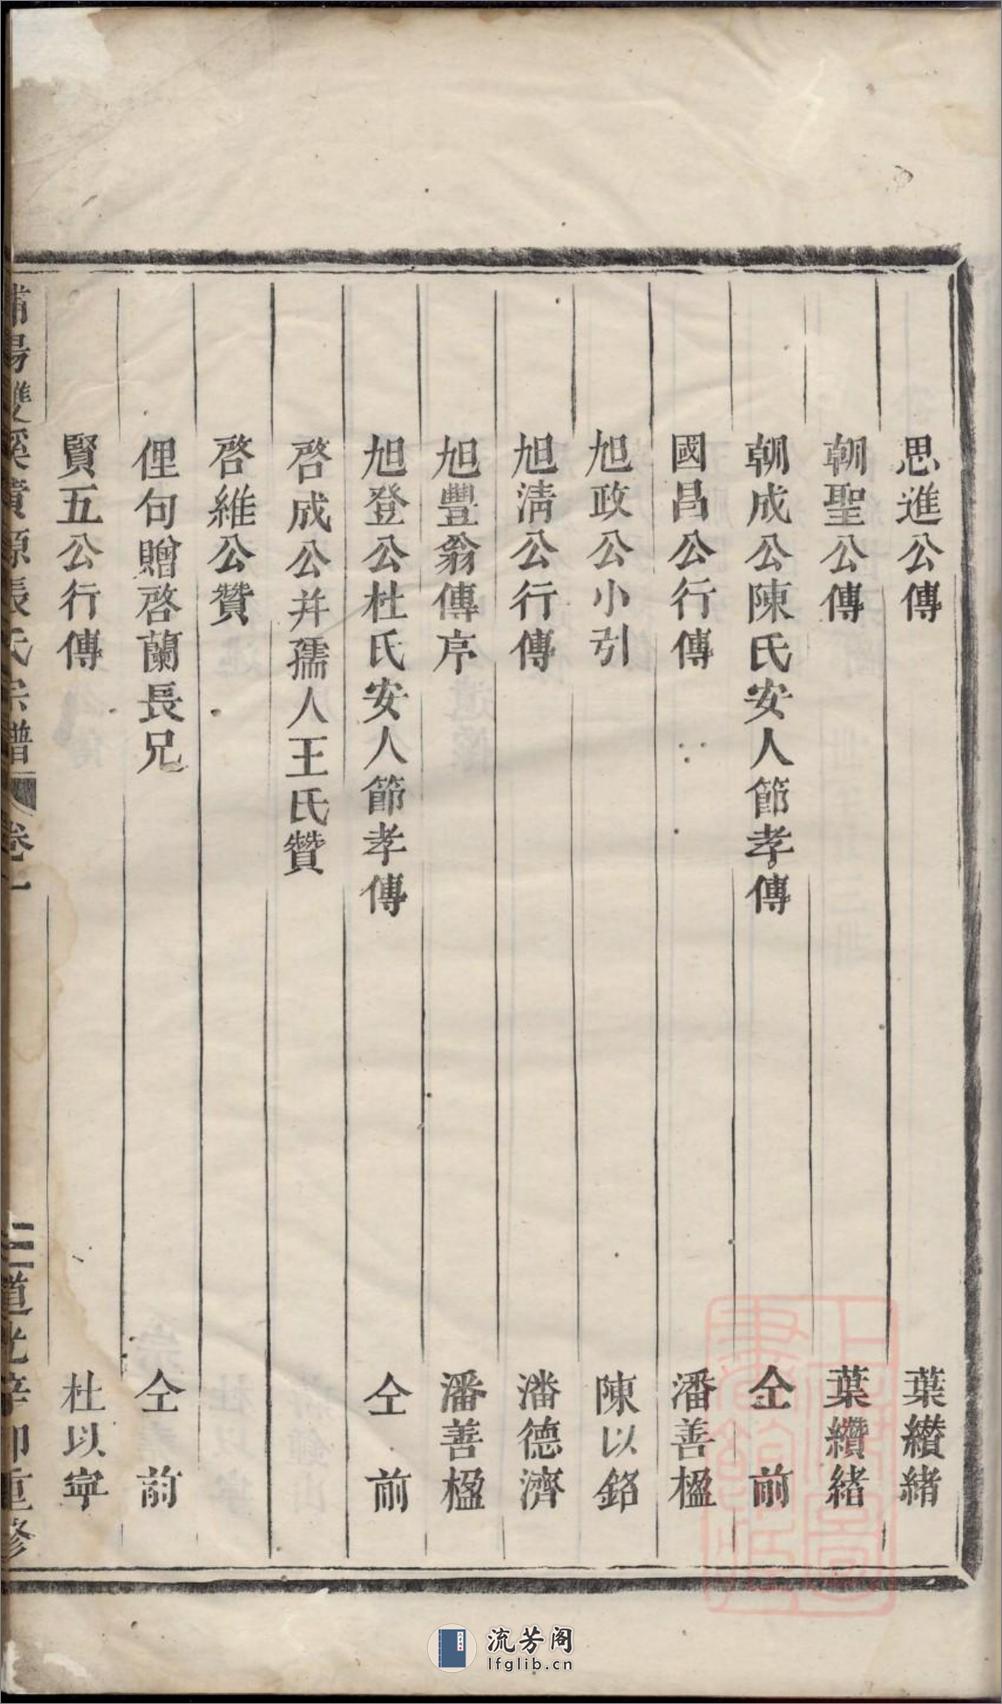 思進公傳 葉纘緒
朝聖公傳 葉纘緒
朝成公陳氏安人節孝傳 仝前
國昌公行傳 潘善楹
旭政公小引 陳以銘
旭淸公行傳 潘德濟
旭豐翁傳序 潘善楹
旭登公杜氏安人節孝傳 仝前
啓成公并孺人王氏贊
啓維公贊
俚句贈啓蘭長兄 仝前
賢五公行傳 杜以寧
浦陽雙溪黃源張氏宗譜 卷一 二 道光辛卯重修
流芳阁
lfglib.cn